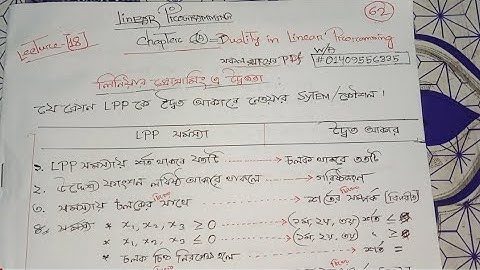 LINEAR PROGRAMMING
62
Lecture-18
Chapter = Duality in Linear Programming
সকল PDF W/A #01409556335
লিনিয়ার প্রোগ্রামিং এ দ্বৈততা:
যে কোন LPP কে দ্বৈত আকারে নেওয়ার SYSTEM/কৌশল।
LPP সমস্যা দ্বৈত আকার
১. LPP সমস্যায় শর্ত থাকবে যতটি → চলক থাকবে ততটি
২. উদ্দেশ্য ফাংশন লঘিষ্ঠ আকারে থাকলে → গরিষ্ঠকরণ
৩. সমস্যায় চলকের সাথে → শর্তের সম্পর্ক [বিপরীত]
৪. সমস্যা * x₁, x₂, x₃ ≥ 0 → (১ম, ২য়, ৩য়) শর্ত ≤
* x₁, x₂, x₃ ≤ 0 → (১ম, ২য়, ৩য়) " ≥
* চলক চিহ্ন নিরপেক্ষ হলে → শর্ত =